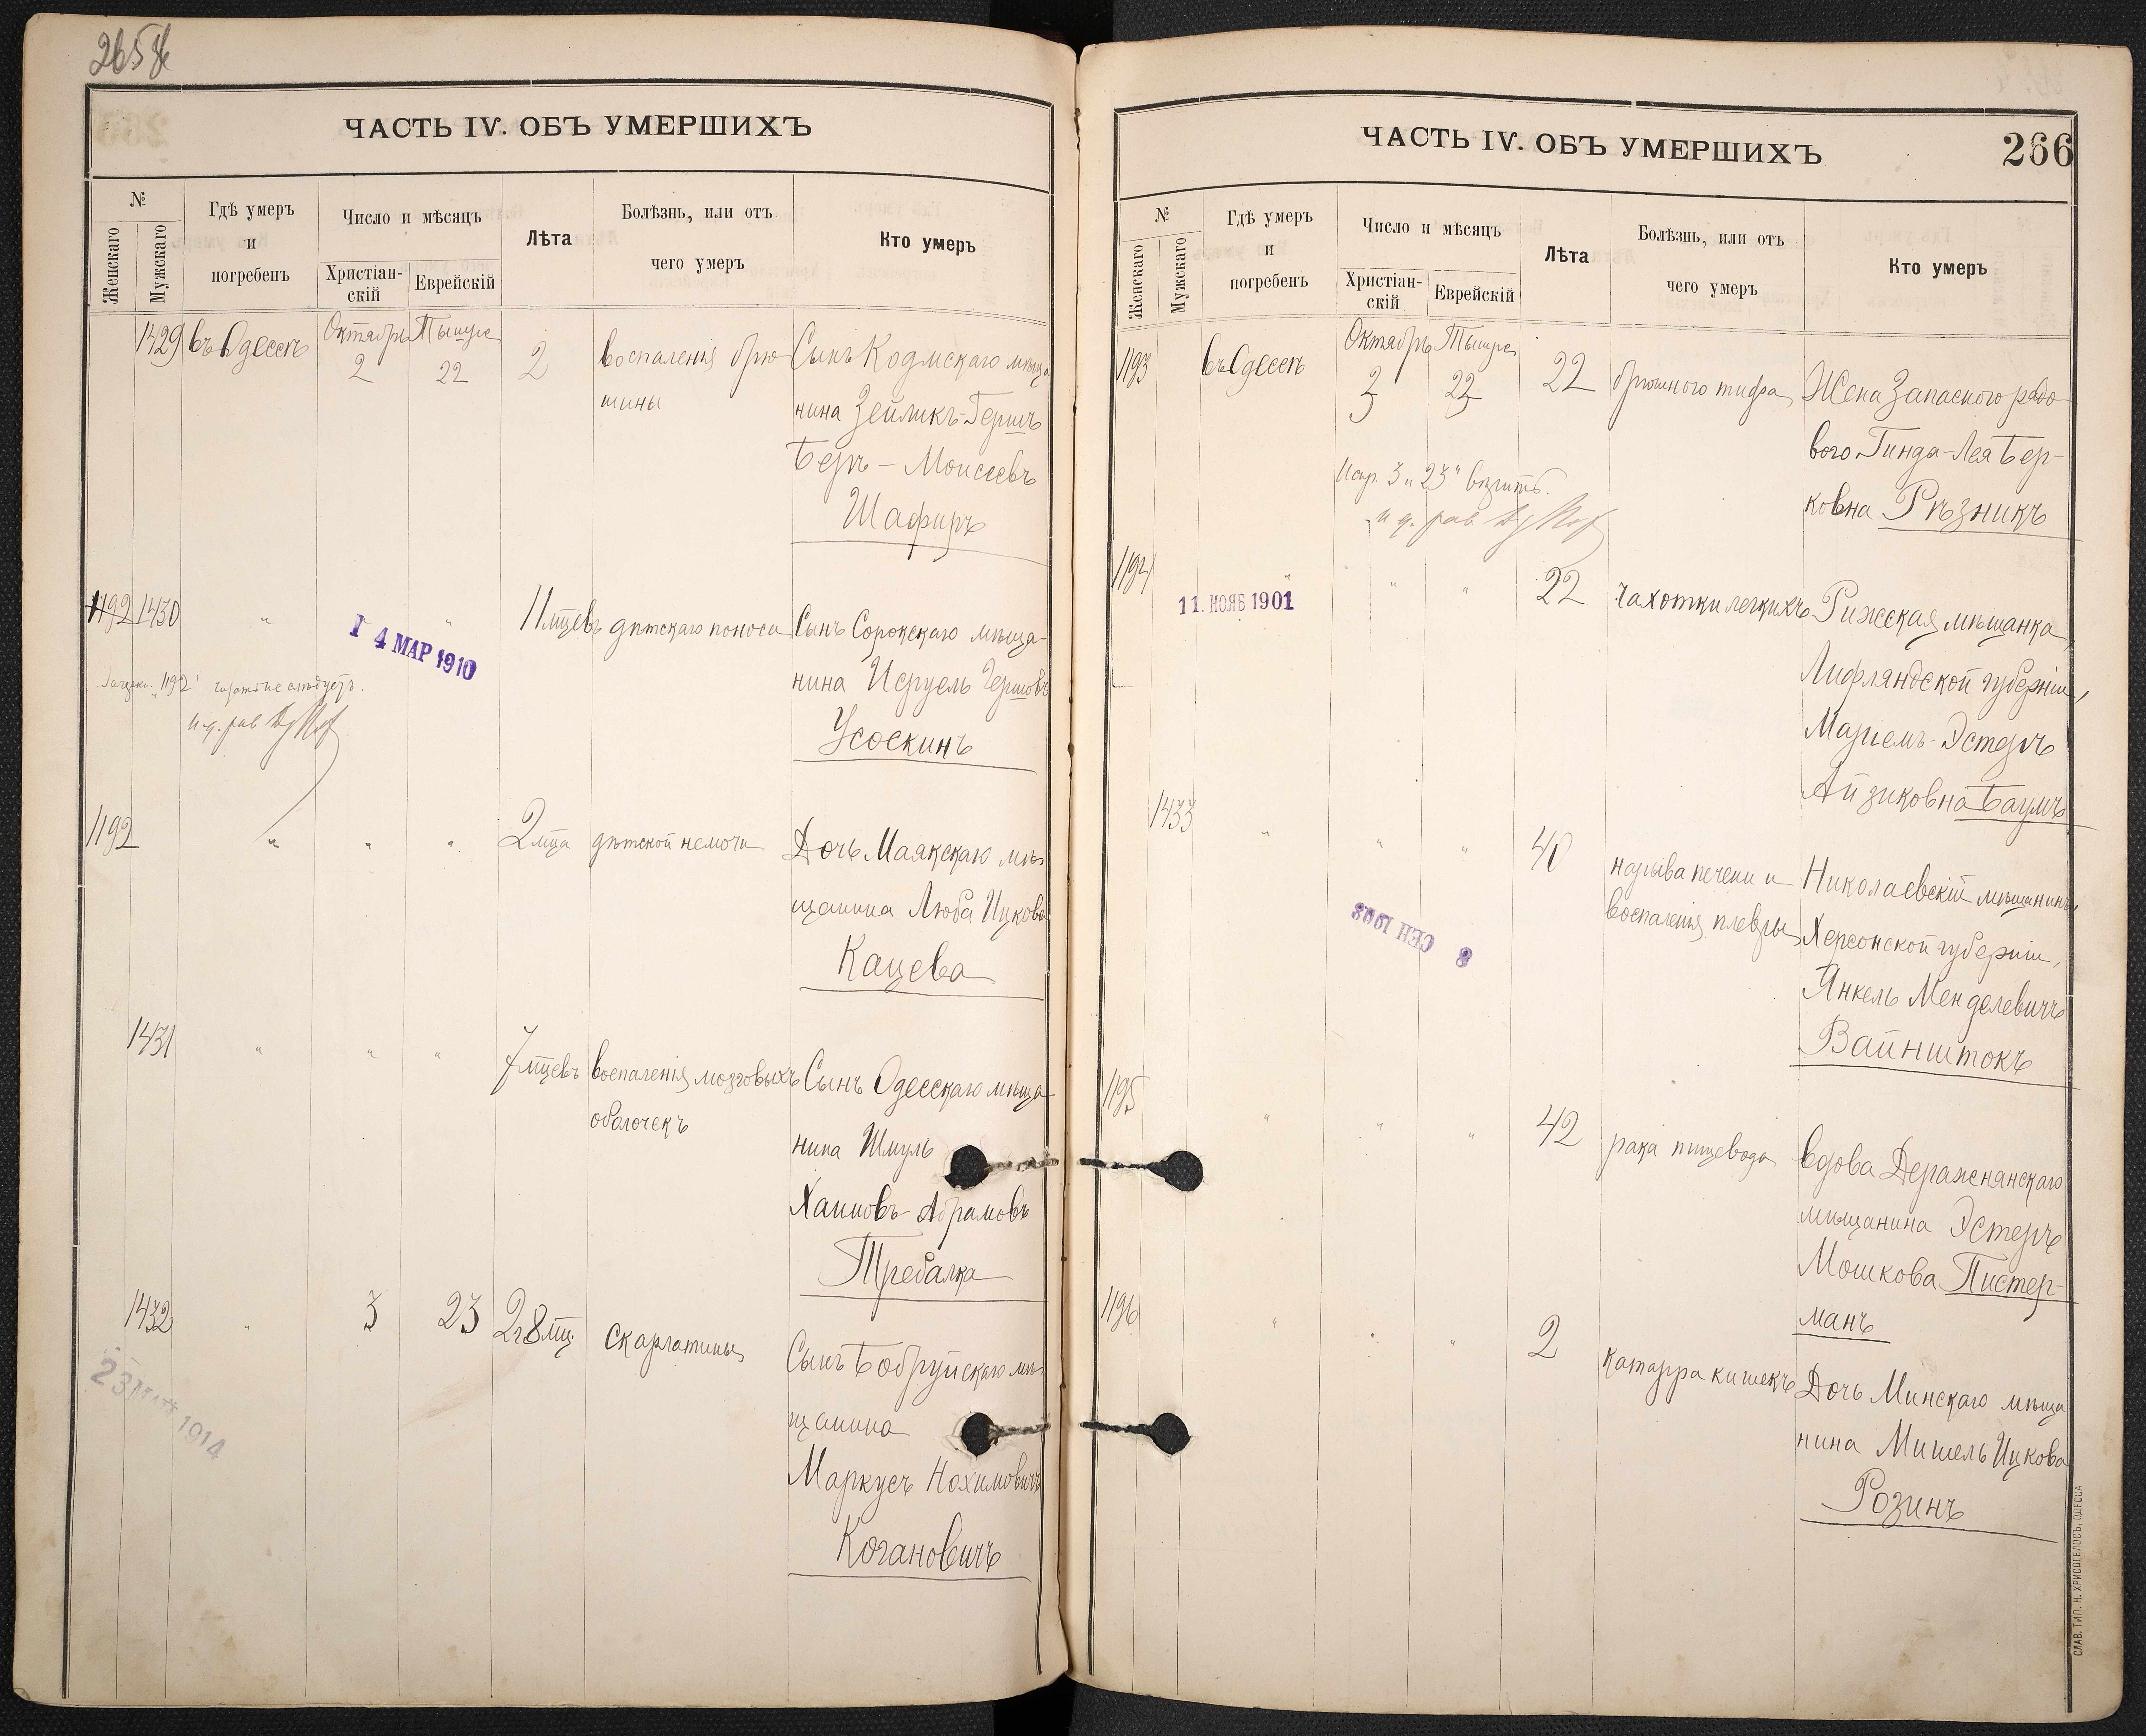 265 об
ЧАСТЬ IV. ОБЪ УМЕРШИХЪ
№
Женскаго
Мужскаго
Гдѣ умеръ
и
погребенъ
Число и мѣсяцъ
Христіан-
скій
Еврейскій
Лѣта
Болѣзнь, или отъ
чего умеръ
Кто умеръ
1429 въ Одессѣ Октябрь 2 Тышре 22 2 воспаленія брю-
шины
Сынъ Кодмскаго мѣща
нина Зейликъ-Гершъ
Беръ - Моисеевъ
Шафиръ
1192 1430 " " 11 мцевъ дѣтскаго поноса
Сынъ Сорокскаго мѣща-
нина Исруель Гершовъ
Усоскинъ
1 4 МАР 1910
Зачеркн. "1192" читать не слѣдуетъ.
и. д. рав
1192 " " " 2 мца дѣтской немочи
Дочь Маякскаго мѣ
щанина Люба Ицкова
Кацева
1431 " " " 7 мцевъ воспаленія мозговыхъ
оболочекъ
Сынъ Одесскаго мѣща-
нина Шмуль
Хаимовъ-Абрамовъ
Требалка
1432 " 3 23 2 г 8 мц. скарлатины
Сынъ Бобруйскаго мѣ
щанина
Маркусъ Нохимовичъ
Когановичъ
23 1914
ЧАСТЬ IV. ОБЪ УМЕРШИХЪ
266
№
Женскаго
Мужскаго
Гдѣ умеръ
и
погребенъ
Число и мѣсяцъ
Христіан-
скій
Еврейскій
Лѣта
Болѣзнь, или отъ
чего умеръ
Кто умеръ
1193 въ Одессѣ Октябрь 3 Тышре 23 22 брюшного тифа
Жена Запаснаго рядо
вого Гинда-Лея Бер-
ковна Рѣзникъ
Испр. 3 и "23" вѣрить.
и д. рав
1194 " " " 22 чахотки легкихъ
11. НОЯБ 1901
Рижская мѣщанка,
Лифляндской губерніи,
Маріемъ-Эстеръ
Айзиковна Баумъ
1433 " " " 40 нарыва печени и
воспаленія плевры
Николаевскій мѣщанинъ,
Херсонской губерніи,
Янкель Менделевичъ
Вайнштокъ
8 СЕН 1903
1195 " " " 42 рака пищевода
вдова Деражнянскаго
мѣщанина Эстеръ
Мошкова Пистер-
манъ
1196 " " " 2 катарра кишекъ
Дочь Минскаго мѣща
нина Мишель Ицкова
Розинъ
СЛАВ. ТИП. Н. ХРИСОГЕЛОСЪ, ОДЕССА